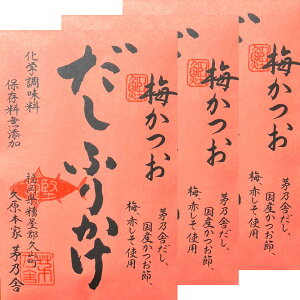 梅かつお
茅乃舎だし、
国産かつお節、
梅、赤しそ使用
梅かつお
梅かつお
茅乃舎だし、
国産かつお節、
梅、赤しそ使用
だしふりかけ
化学調味料
保存料無添加
福岡県糟屋郡久山町
久原本家 茅乃舎